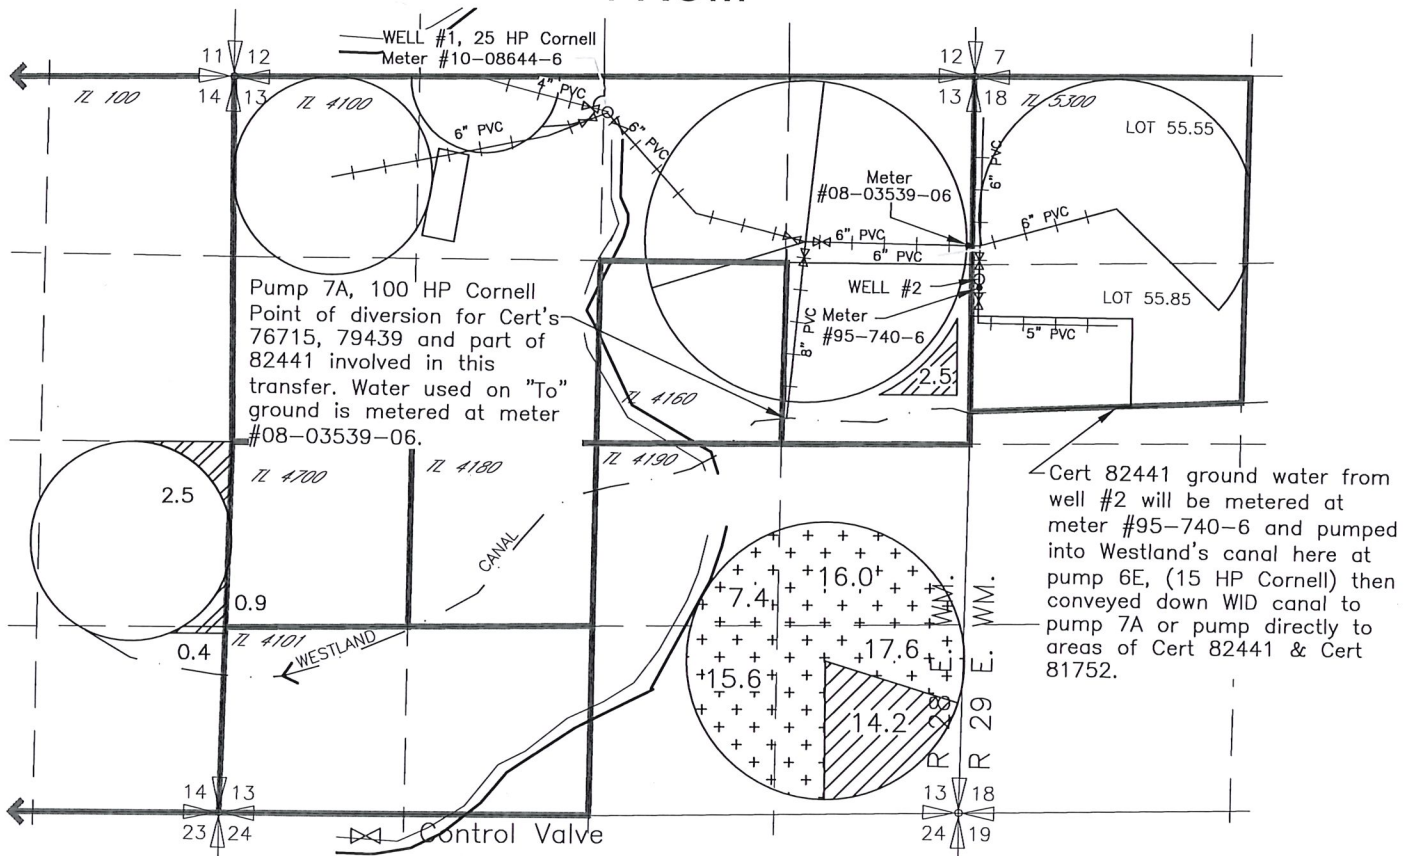 WELL #1, 25 HP Cornell
Meter #10-08644-6
11 12
14 13
12 7
13 18
TL 100
TL 4100
TL 5300
4" PVC
6" PVC
6" PVC
LOT 55.55
6" PVC
Meter
#08-03539-06
6" PVC
6" PVC
6" PVC
WELL #2
Meter
#95-740-6
8" PVC
LOT 55.85
5" PVC
2.5
Pump 7A, 100 HP Cornell
Point of diversion for Cert's
76715, 79439 and part of
82441 involved in this
transfer. Water used on "To"
ground is metered at meter
#08-03539-06.
TL 4160
TL 4700
TL 4180
TL 4190
2.5
0.9
0.4
TL 4101
WESTLAND
CANAL
Cert 82441 ground water from
well #2 will be metered at
meter #95-740-6 and pumped
into Westland's canal here at
pump 6E, (15 HP Cornell) then
conveyed down WID canal to
pump 7A or pump directly to
areas of Cert 82441 & Cert
81752.
16.0
7.4
17.6
15.6
14.2
R 28 E. WM.
R 29 E. WM.
14 13
23 24
13 18
24 19
Control Valve